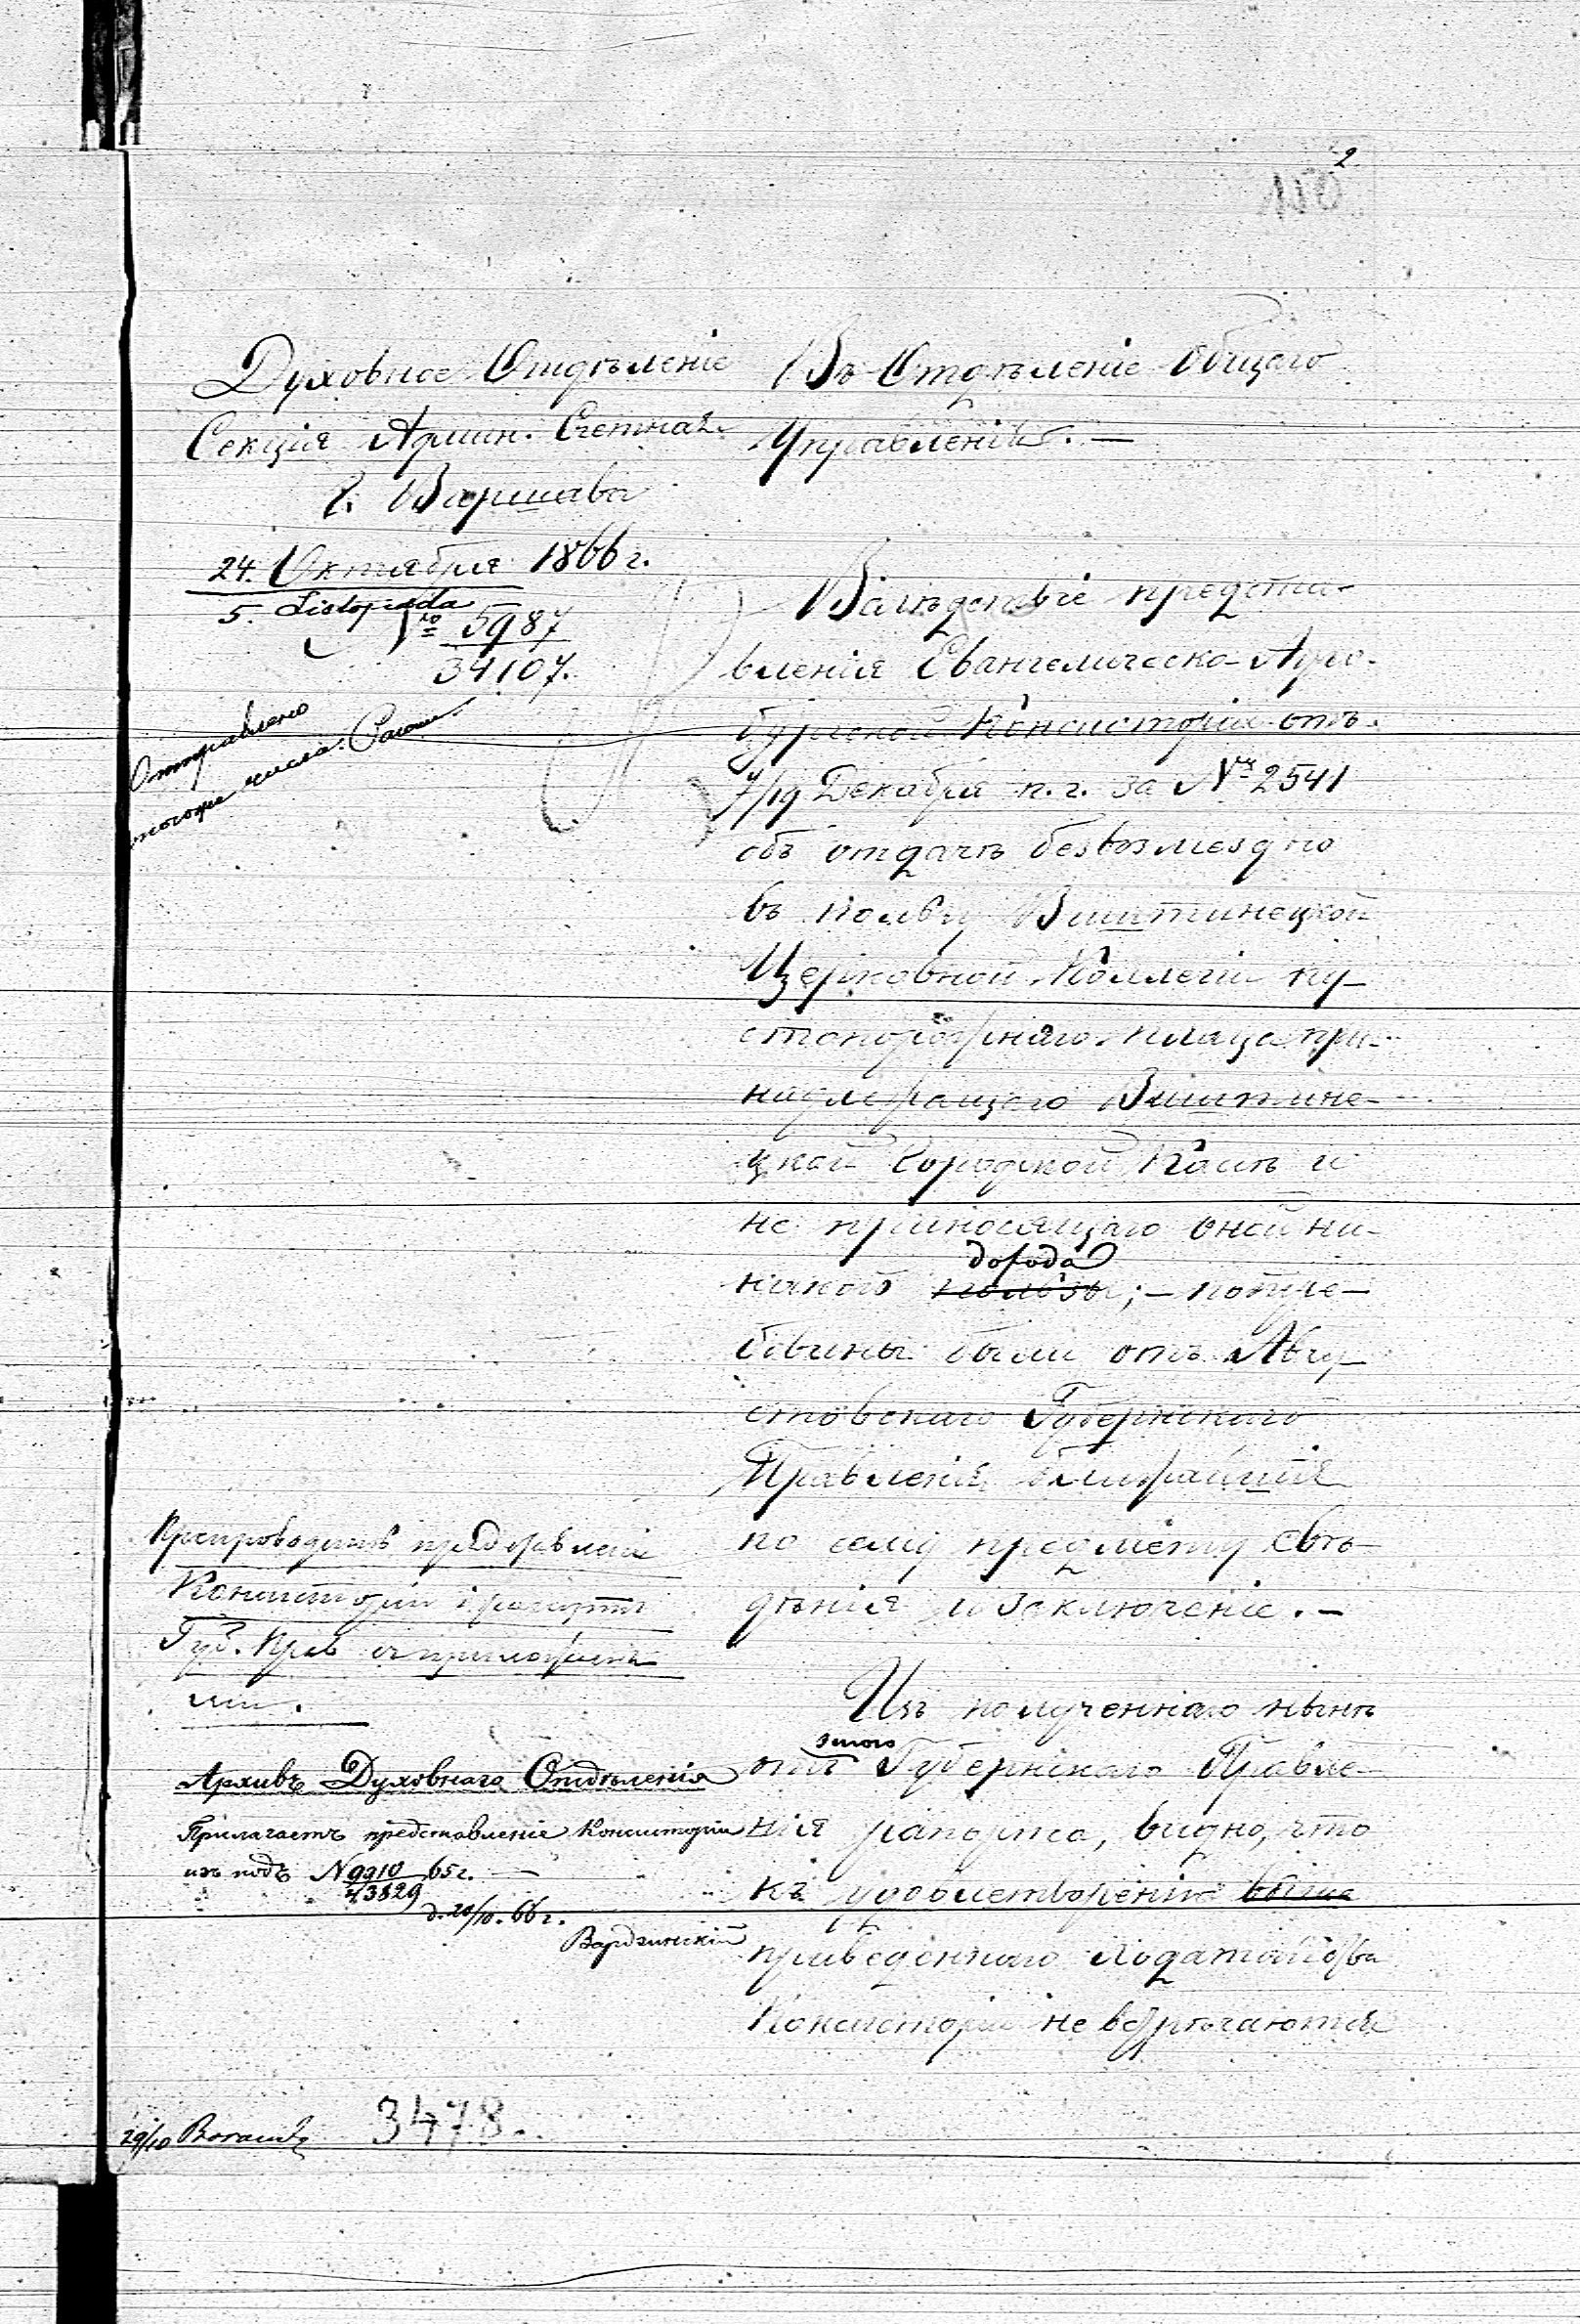 2
Духовное Отдѣленіе
Секція Админ. Счетная
г. Варшава
24. Октября 1866 г.
5. Listopada
№ 5987
34107.
Отправлено
тогоже числа.
Въ Отдѣленіе Общаго
Управленія. —
Вслѣдствіе предста-
вленія Евангелическо-Аугс-
бургской Консисторіи отъ
7/19 Декабря п. г. за № 2541
объ отдачѣ безвозмездно
въ пользу Виштинецкой
Церковной Коллегіи пу-
стопорожняго плаца при-
надлежащаго Виштине-
цкой Городской Кассѣ и
не приносящаго оной ни-
какого дохода
пользы; — потре-
бованы были отъ Авгу-
стовскаго Губернскаго
Правленія ближайшія
по сему предмету свѣ-
дѣнія и заключеніе. —
Изъ полученнаго нынѣ
отъ этого Губернскаго Правле-
нія рапорта, видно, что
къ удовлетворенію выше
приведеннаго ходатайства
Консисторіи не встрѣчаются
Препроводить представленіе
Консисторіи и рапортъ
Губ. Прав. съ приложенія-
ми.
Архивъ Духовнаго Отдѣленія
Прилагаетъ представленіе Консисторіи
изъ подъ N 9910 65 г. —
43829
д. 20/10. 66 г.
29/10
3478.